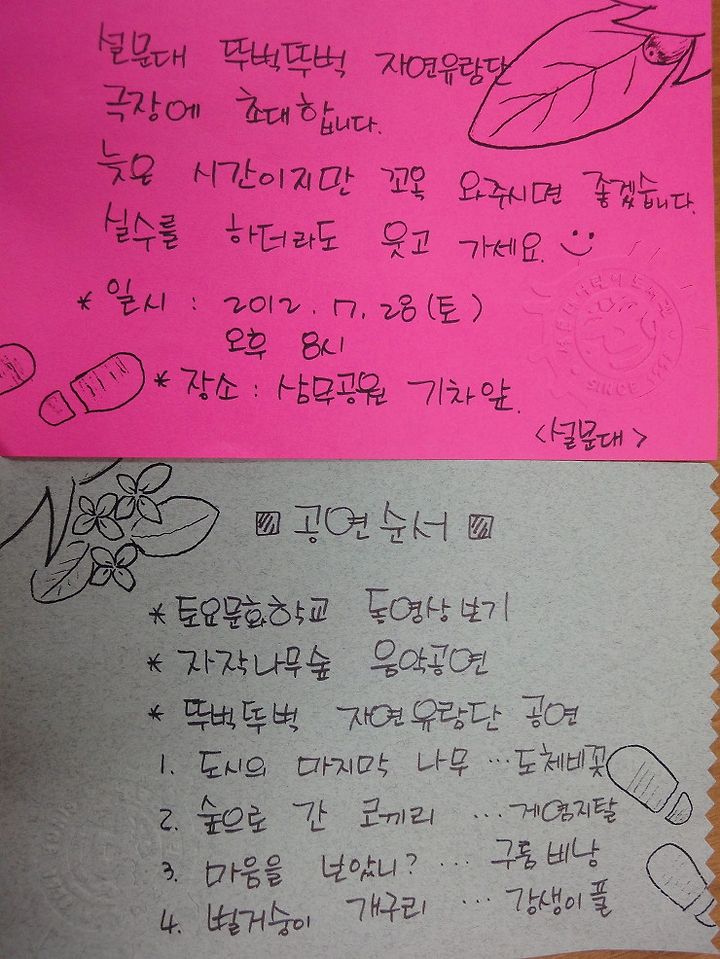 설문대 뚜벅뚜벅 자연유랑단
극장에 초대합니다.
늦은 시간이지만 꼬옥 와주시면 좋겠습니다.
실수를 하더라도 웃고 가세요.
* 일시 : 2012. 7. 28(토)
오후 8시
* 장소 : 삼무공원 기차앞.
<설문대>
SINCE
공연순서
* 토요문화학교 동영상보기
* 자작나무숲 음악공연
* 뚜벅뚜벅 자연유랑단 공연
1. 도시의 마지막 나무 … 도체비꽃
2. 숲으로 간 코끼리 … 게염지탈
3. 마음을 보았니? … 구룸비낭
4. 벌거숭이 개구리 … 강생이풀